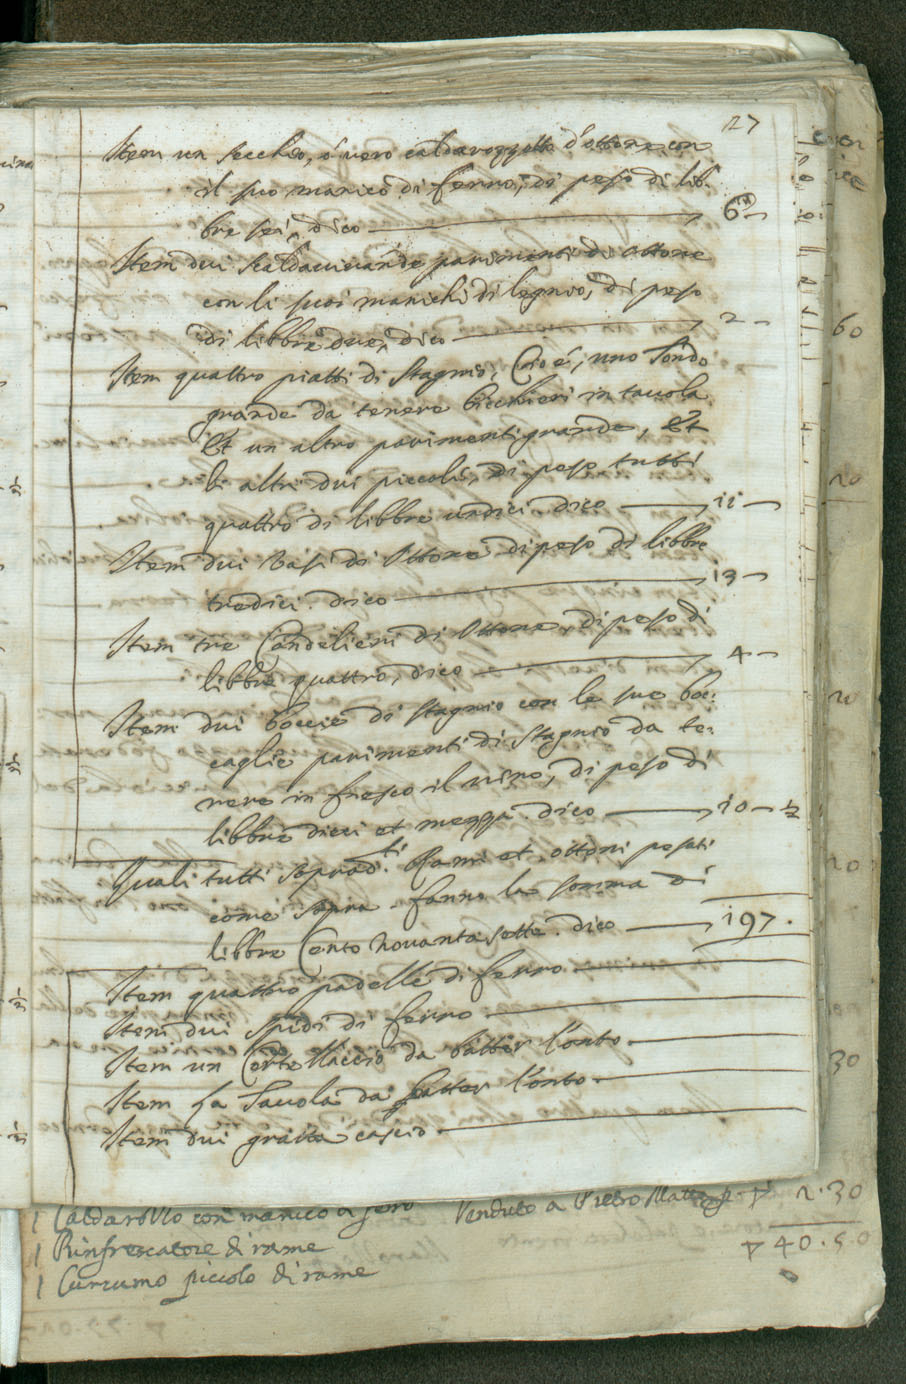 27
Item un secchio, ó vero caldarozzetto d'ottone con
il suo manico di ferro, di peso di lib-
bre sei, dico 6
Item dui scaldavivande parimenti di ottone
con li suoi manichi di legnio, di peso
di libbre due, dico 2
Item quattro piatti di stagnio, Cioé, uno tondo
grande da tenere bicchieri in tavola
Et un altro parimenti grande, et
li altri dui piccoli, di peso tutti
quattro di libbre undici. dico 11
Item dui Vasi di Ottone di peso di libbre
tredici. dico 13
Item tre Candelieri di Ottone, di peso di
libbre quattro, dico 4
Item dui boccie di stagnio con le sue boc:
caglie parimenti di stagnio da te:
nere in fresco il vino, di peso di
libbre dieci et mezza. dico 10 ½
Quali tutti soprad.ti Rami et ottoni pesati
come sopra fanno la somma di
libbre Cento Novanta sette. dico 197.
Item quattro padelle di ferro
Item dui spidi di ferro
Item un Cortellaccio da batter l'onto
Item la Tavola da batter l'onto
Item dui gratta cascio
1 Caldarollo con manico di ferro Venduto a Pietro 2.30
1 Rinfrescatore di rame 40.50
1 Cucumo piccolo di rame
60
20
20
20
30